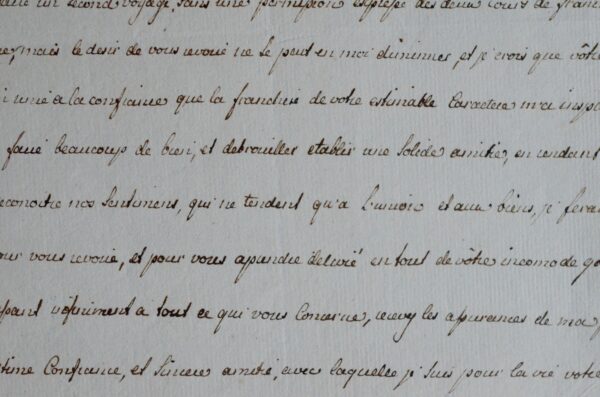 un second voyage, sans une permission expresse des deux cours de
mais le desir de vous revoir ne se peut en moi diminuer, et je crois que vôtre
unie a la confiance que la franchise de votre estimable Caractere
faire beaucoup de bien, et debrouiller etablir une solide amitié, en rendant
nos Sentimens, qui ne tendent qu'a l'union et aux biens, je
vous revoir, et pour vous delivré en tout de vôtre incomode
infiniment a tout ce qui vous Concerne, recevez les assurances de ma
Confiance, et Sincere amitié, avec laquelle je suis pour la vie votre